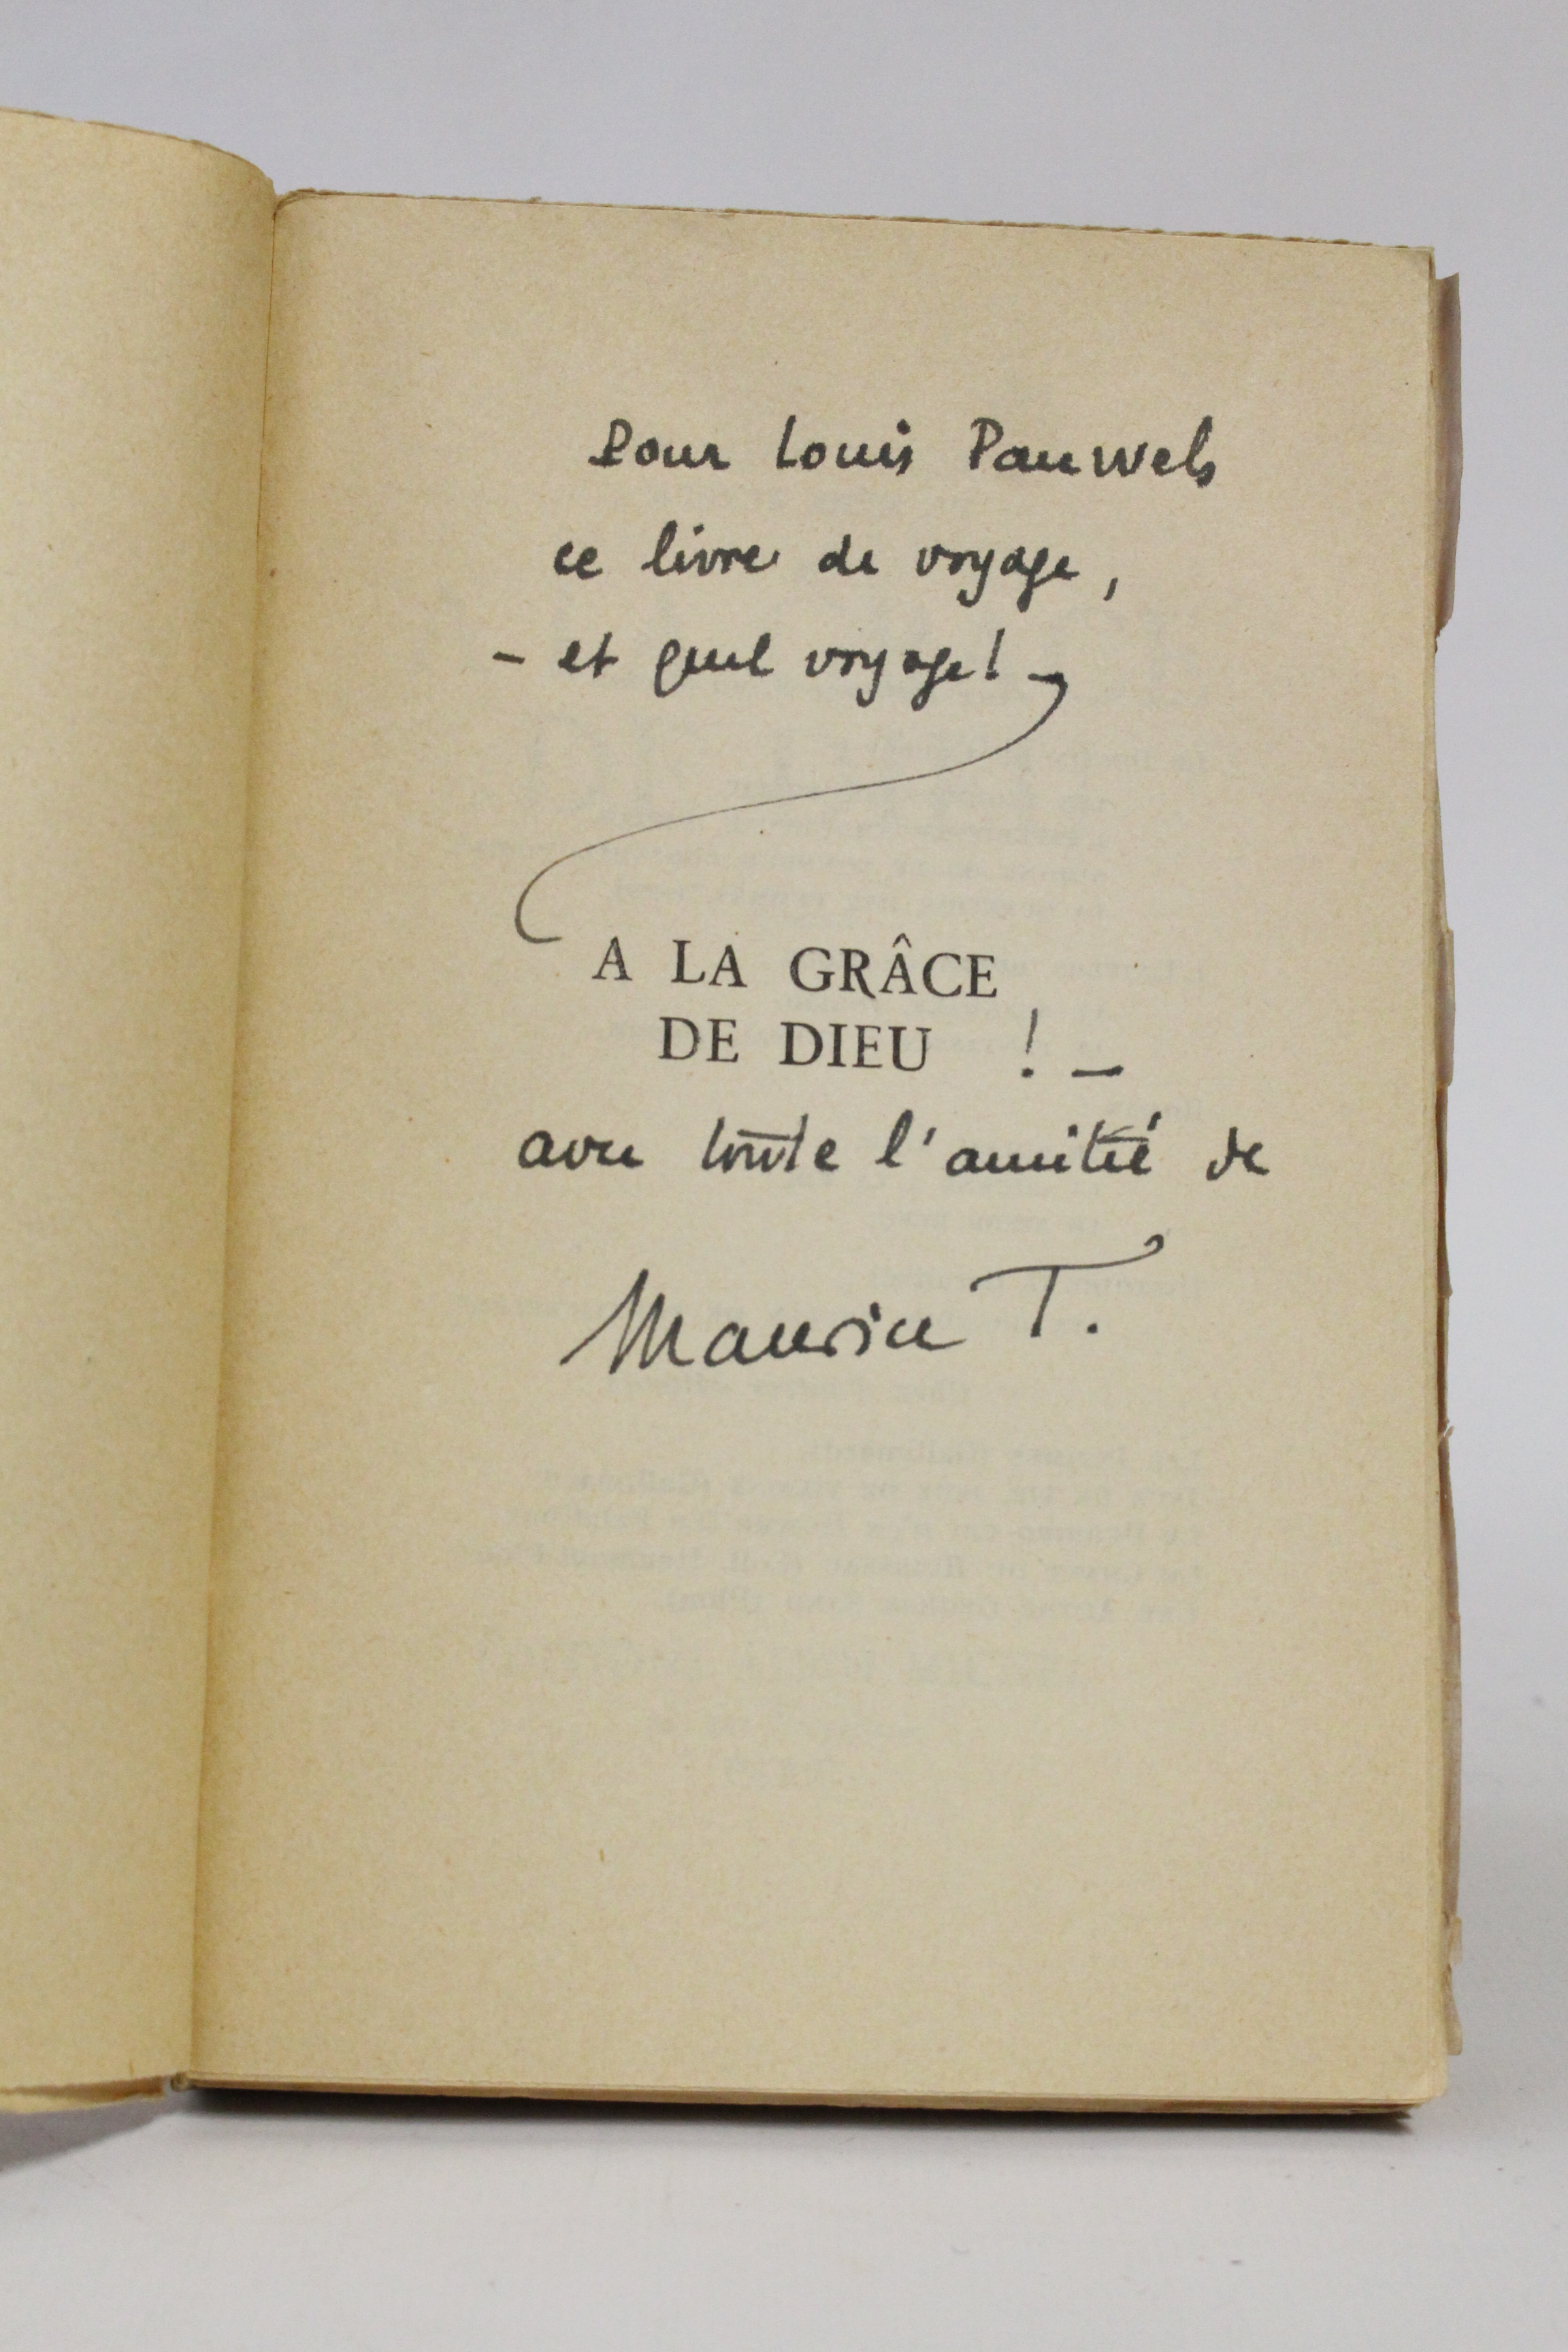 Pour Louis Pauwels
ce livre de voyage,
– et quel voyage! –
A LA GRÂCE
DE DIEU ! –
avec toute l'amitié de
Maurice T.